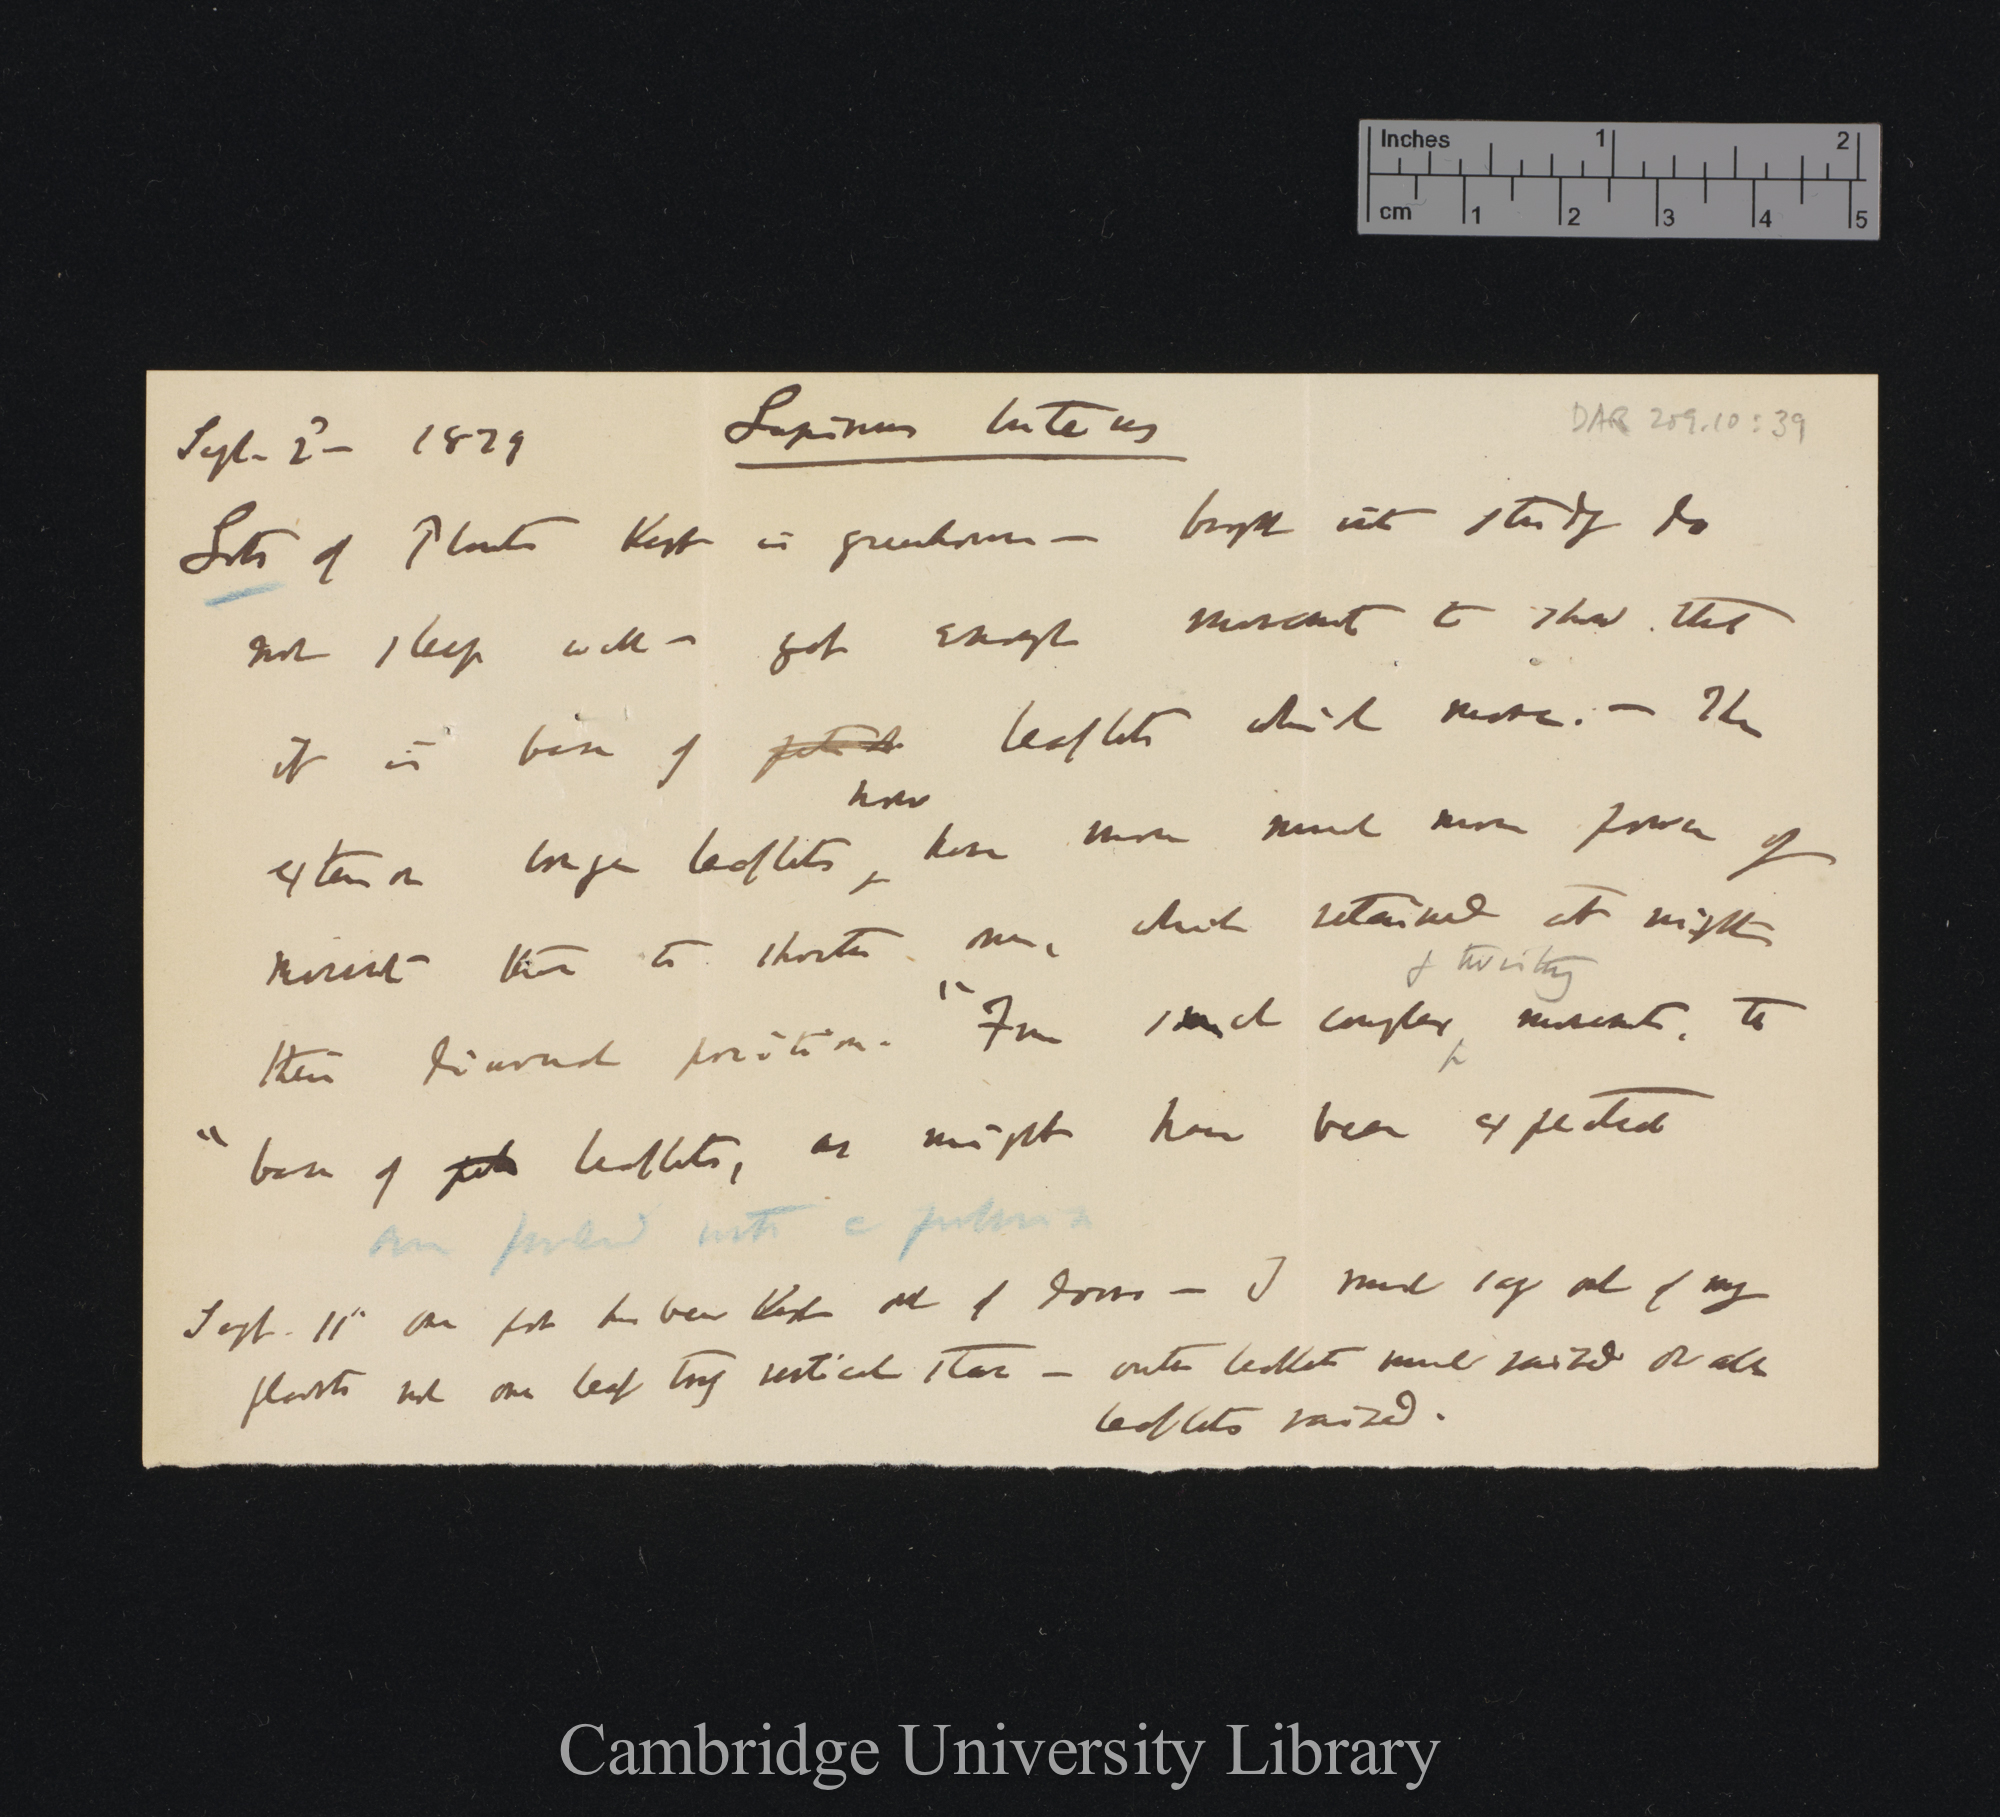 Inches 1 2
cm 1 2 3 4 5
Sept. 2d — 1879 Lupinus luteus DAR 209.10:39
Lots of Plants kept in greenhouse — brought into study do
not sleep well — yet enough movement to show that
it is base of leaflets which move. — The
now
exterior longer leaflets, have more much more power of
movement than the shorter ones, which retained at night
& twisting
their diurnal position. "From such complex movements, the
"base of leaflets, as might have been expected
are provided with a pulvinus
Sept. 11th one pot has been kept out of doors — I must say out of my
plants not one leaf truly vertical star — outer leaflets much raised or all
leaflets raised.
Cambridge University Library